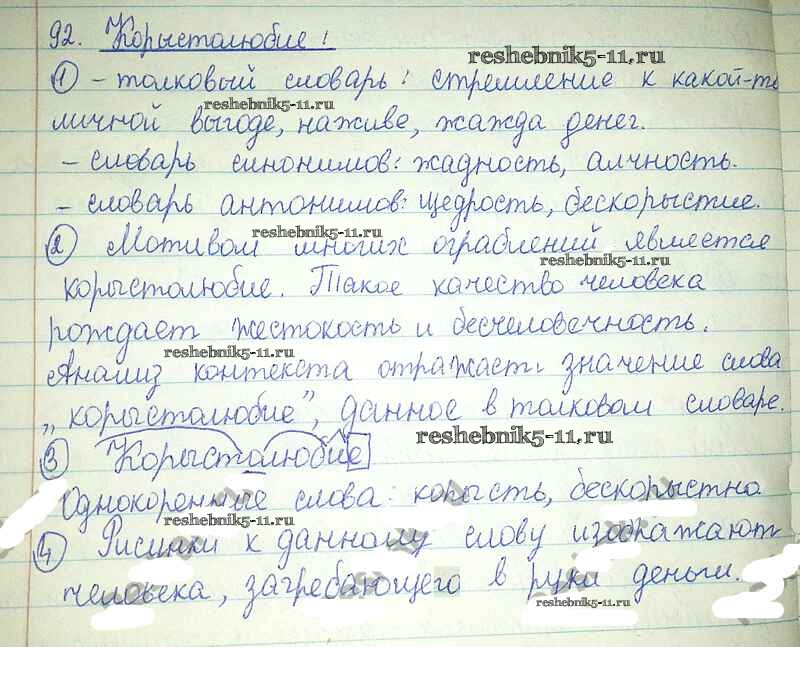 92. Корыстолюбие!
reshebnik5-11.ru
1 – толковый словарь: стремление к какой-то
reshebnik5-11.ru
личной выгоде, наживе, жажда денег.
– словарь синонимов: жадность, алчность.
– словарь антонимов: щедрость, бескорыстие.
reshebnik5-11.ru
2 Мотивом многих ограблений является
reshebnik5-11.ru
корыстолюбие. Такое качество человека
рождает жестокость и бесчеловечность.
reshebnik5-11.ru
Анализ контекста отражает значение слова
„корысталюбие”, данное в толковом словаре.
reshebnik5-11.ru
3 Корыстолюбие
Однокоренные слова: корысть, бескорыстно
reshebnik5-11.ru
4 Рисунки к данному слову изображают
человека, загребающего в руки деньги.
reshebnik5-11.ru